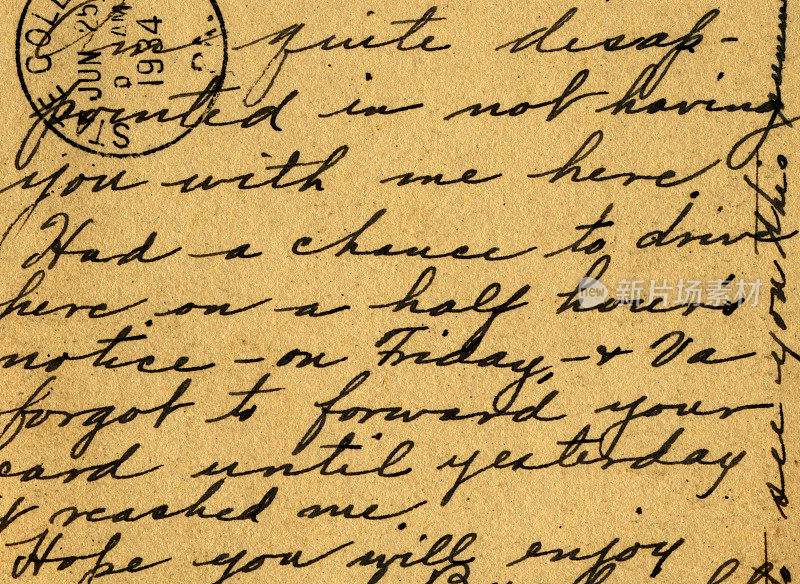 STATE COLLE
JUN 25
9 AM
1934
PA.
me quite disap-
pointed in not having
you with me here.
Had a chance to drive
here on a half hour's
notice - on Friday, - & Va
forgot to forward your
card until yesterday
reached me
Hope you will enjoy
see you this summer
iStock
www.istockphoto.com